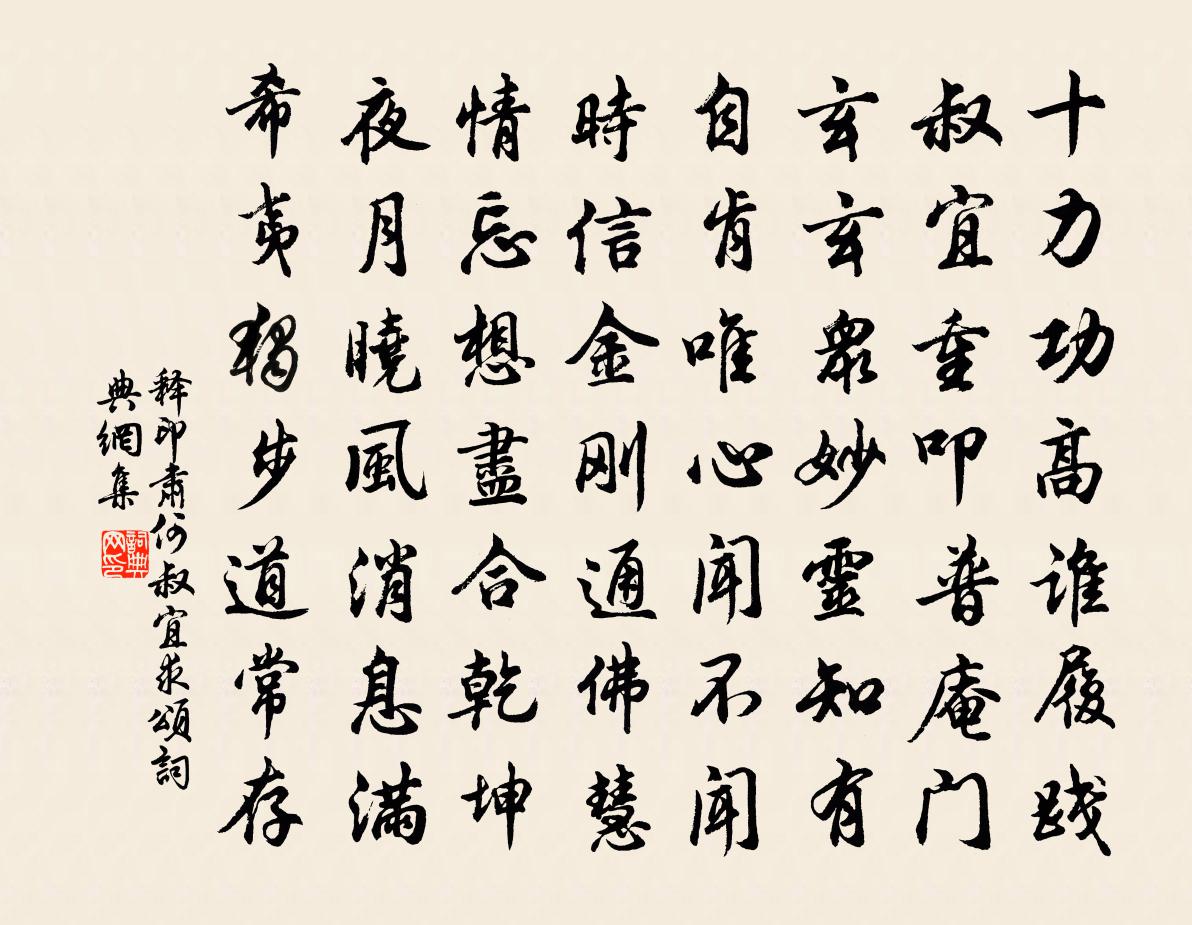 十力功高谁履践
叔宜重叩普庵门
玄玄眾妙靈知有
自肯唯心闻不闻
時信金刚通佛慧
情忘想盡合乾坤
夜月曉風消息满
希夷獨步道常存
释印肅何叔宜求頌詞
典網集
詞典
网印